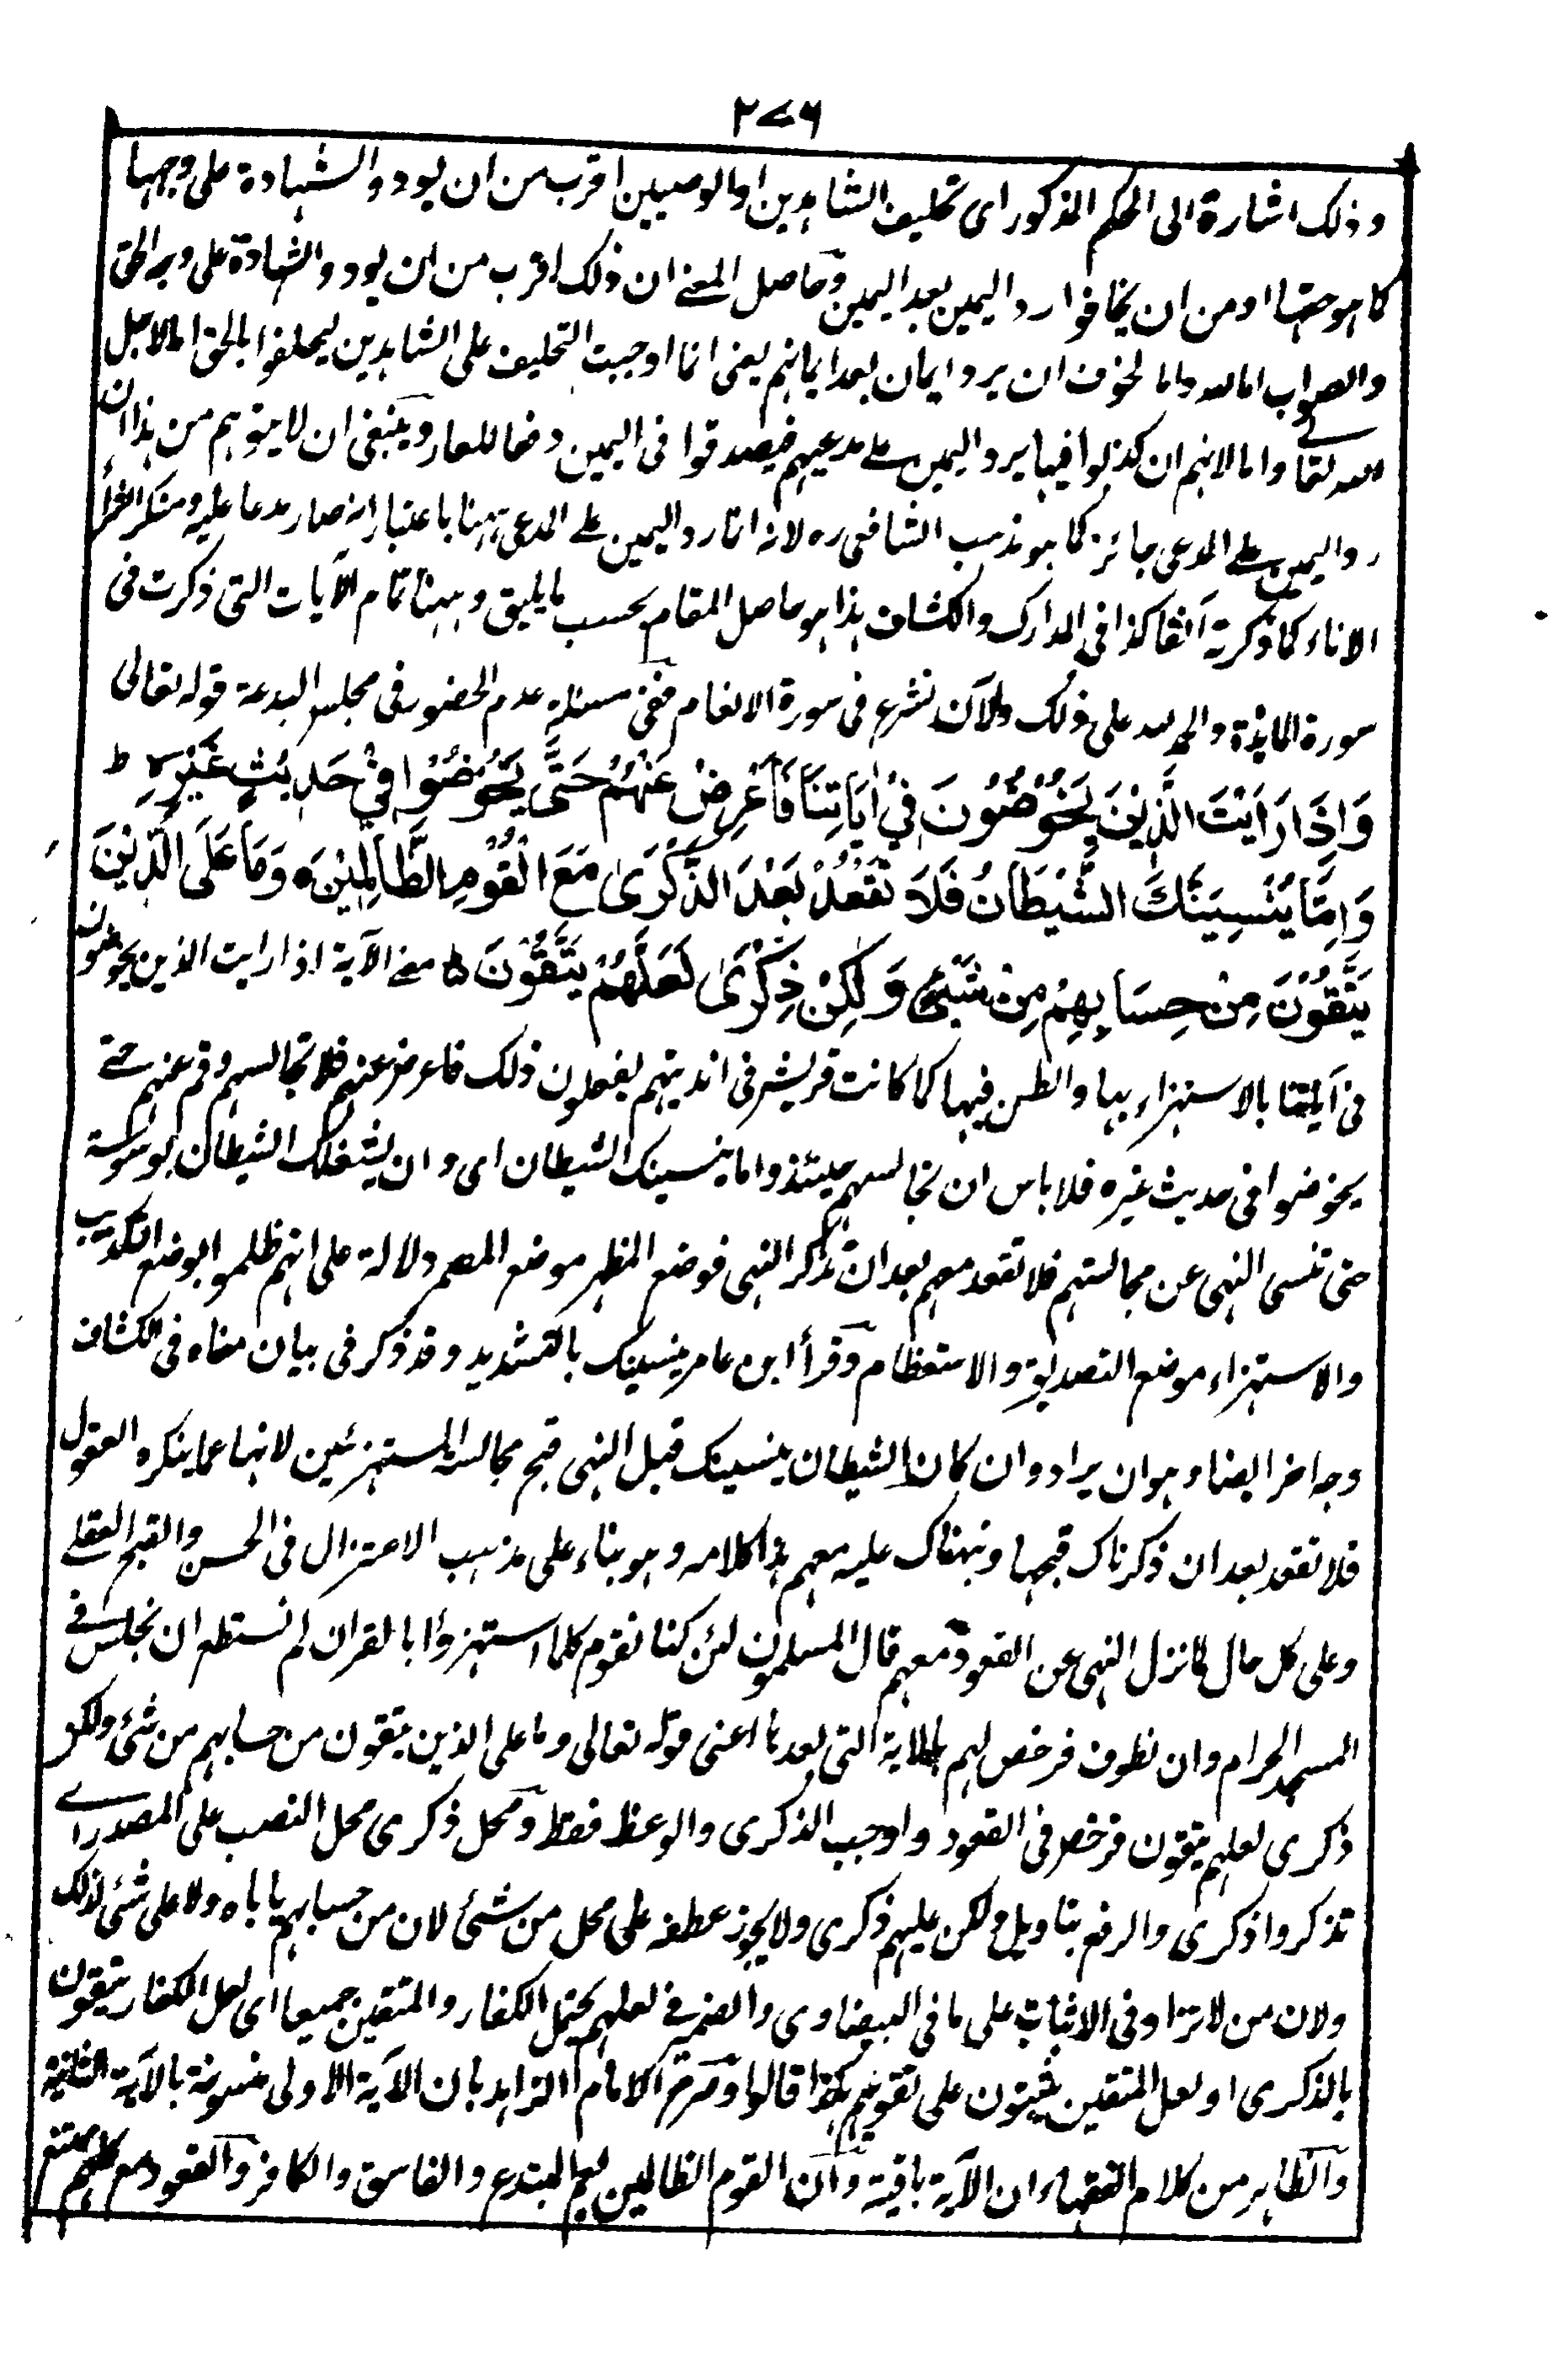 ۲۷۶
وذلك اشارة الى الحكم المذكور اى تحليف الشاهدين او الوصيين اقرب من ان يودوا الشهادة على وجهها
كما هو حقها او من ان يخافوا رد اليمين بعد اليمين وحاصل المعنے ان ذلك اقرب من ان يودوا الشهادة على وجه الحق
والصواب اما لله واما لخوف ان يرد ايمان بعد ايمانهم يعنى انا اوجبت التحليف على الشاهدين ليحلفوا بالحق اما لاجل
الله تعالے واما لانهم ان كذبوا فيها يرد اليمين علے مدعيهم فيصدقوا فى اليمين دفعا للعار وينبغى ان لا يتوهم من هذا ان
رد اليمين علے المدعى جائز كما هو مذهب الشافعى ره لانه انما رد اليمين علے المدعى ههنا باعتبار انه صار مدعا عليه ومنكر الشراء
الاناء كما ذكرته آنفا كذا فى المدارك والكشاف هذا هو حاصل المقام بحسب ما يليق وههنا تمام الآيات التى ذكرت فى
سورة المائدة والحمد لله على ذلك والآن نشرع فى سورة الانعام ففى مسئلة عدم الحضور فى مجلس البدعة قوله تعالى
وَاِذَا رَاَيْتَ الَّذِيْنَ يَخُوْضُوْنَ فِيْ اٰيَاتِنَا فَاَعْرِضْ عَنْهُمْ حَتَّى يَخُوْضُوْا فِيْ حَدِيْثٍ غَيْرِهِ ط
وَاِمَّا يُنْسِيَنَّكَ الشَّيْطَانُ فَلَا تَقْعُدْ بَعْدَ الذِّكْرَىٰ مَعَ الْقَوْمِ الظَّالِمِيْنَ ه وَمَا عَلَى الَّذِيْنَ
يَتَّقُوْنَ مِنْ حِسَابِهِمْ مِنْ شَيْئٍ وَلٰكِنْ ذِكْرٰى لَعَلَّهُمْ يَتَّقُوْنَ ه معنے الآية اذا رايت الذين يخوضون
فى آيٰتنا بالاستهزاء بها والطعن فيها كما كانت قريش فى انديتهم يفعلون ذلك فاعرض عنهم فلا تجالسهم وقم عنهم حتے
يخوضوا فى حديث غيره فلا باس ان تجالسهم حينئذ واما ينسينك الشيطان اى وان يشغلك الشيطان بوسوسة
حتى تنسى النهى عن مجالستهم فلا تقعد معهم بعد ان تذكر النهى فوضع المظهر موضع المضمر دلالة على انهم ظلموا بوضع التكذيب
والاستهزاء موضع التصديق والاستعظام وقرأ ابن عامر ينسينك بالتشديد وقد ذكر فى بيان معناه فى الكشاف
وجه اخر ايضا وهو ان يراد وان كان الشيطان ينسينك قبل النهى قبح مجالسة المستهزئين لانها مما ينكره العقول
فلا تقعد بعد ان ذكرناك قبحها ونبهناك عليه معهم هذا كلامه وهو بناء على مذهب الاعتزال فى الحسن والقبح العقلے
وعلى كل حال لما نزل النهى عن القعود معهم قال المسلمون لئن كنا نقوم كلما استهزؤا بالقران لم نستطع ان نجلس فے
المسجد الحرام وان نطوف فرخص لهم بالآية التى بعدها اعنى قوله تعالى وما على الذين يتقون من حسابهم من شئ ولكن
ذكرى لعلهم يتقون فرخص فى القعود واوجب الذكرى والوعظ فقط ومحل ذكرى محل النصب على المصدر اے
تذكروا ذكرى والرفع بتاويل ولكن عليهم ذكرى ولا يجوز عطفه على محل من شئ لان من حسابهم ياباه ولا على شئ لذلك
ولان من لا تزاد فى الاثبات على ما فى البيضاوى والضمير فے لعلهم يحتمل الكفار والمتقين جميعا اى لعل الكفار يتقون
بالذكرى او لعل المتقين يثبتون على تقويهم هكذا قالوا وصرح الامام الزاهد بان الآية الاولى منسوخة بالآية الثانية
والظاهر من كلام الفقهاء ان الآية باقية وان القوم الظالمين يعم المبتدع والفاسق والكافر والقعود مع كلهم ممتنع